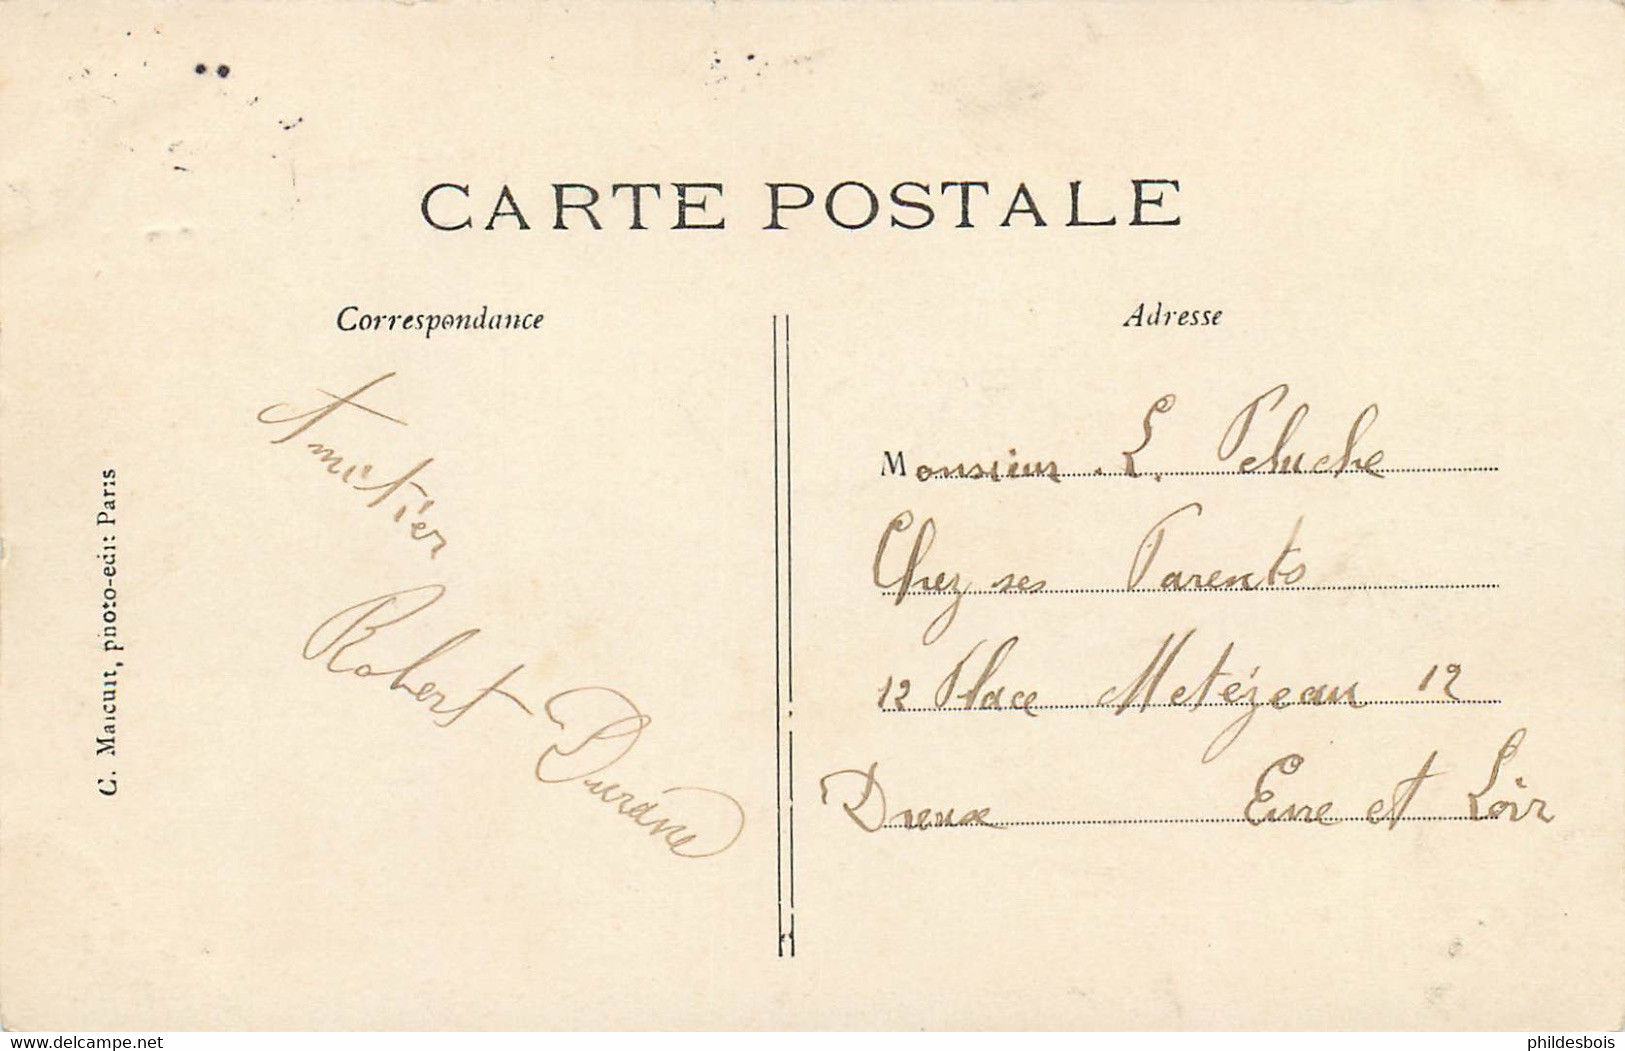 CARTE POSTALE
Correspondance
Adresse
Amitiés
Robert Durand
Monsieur L. Peluche
Chez ses Parents
12 Place Metézeau 12
Dreux Eure et Loir
C. Malcuit, photo-edit Paris
www.delcampe.net
phildesbois